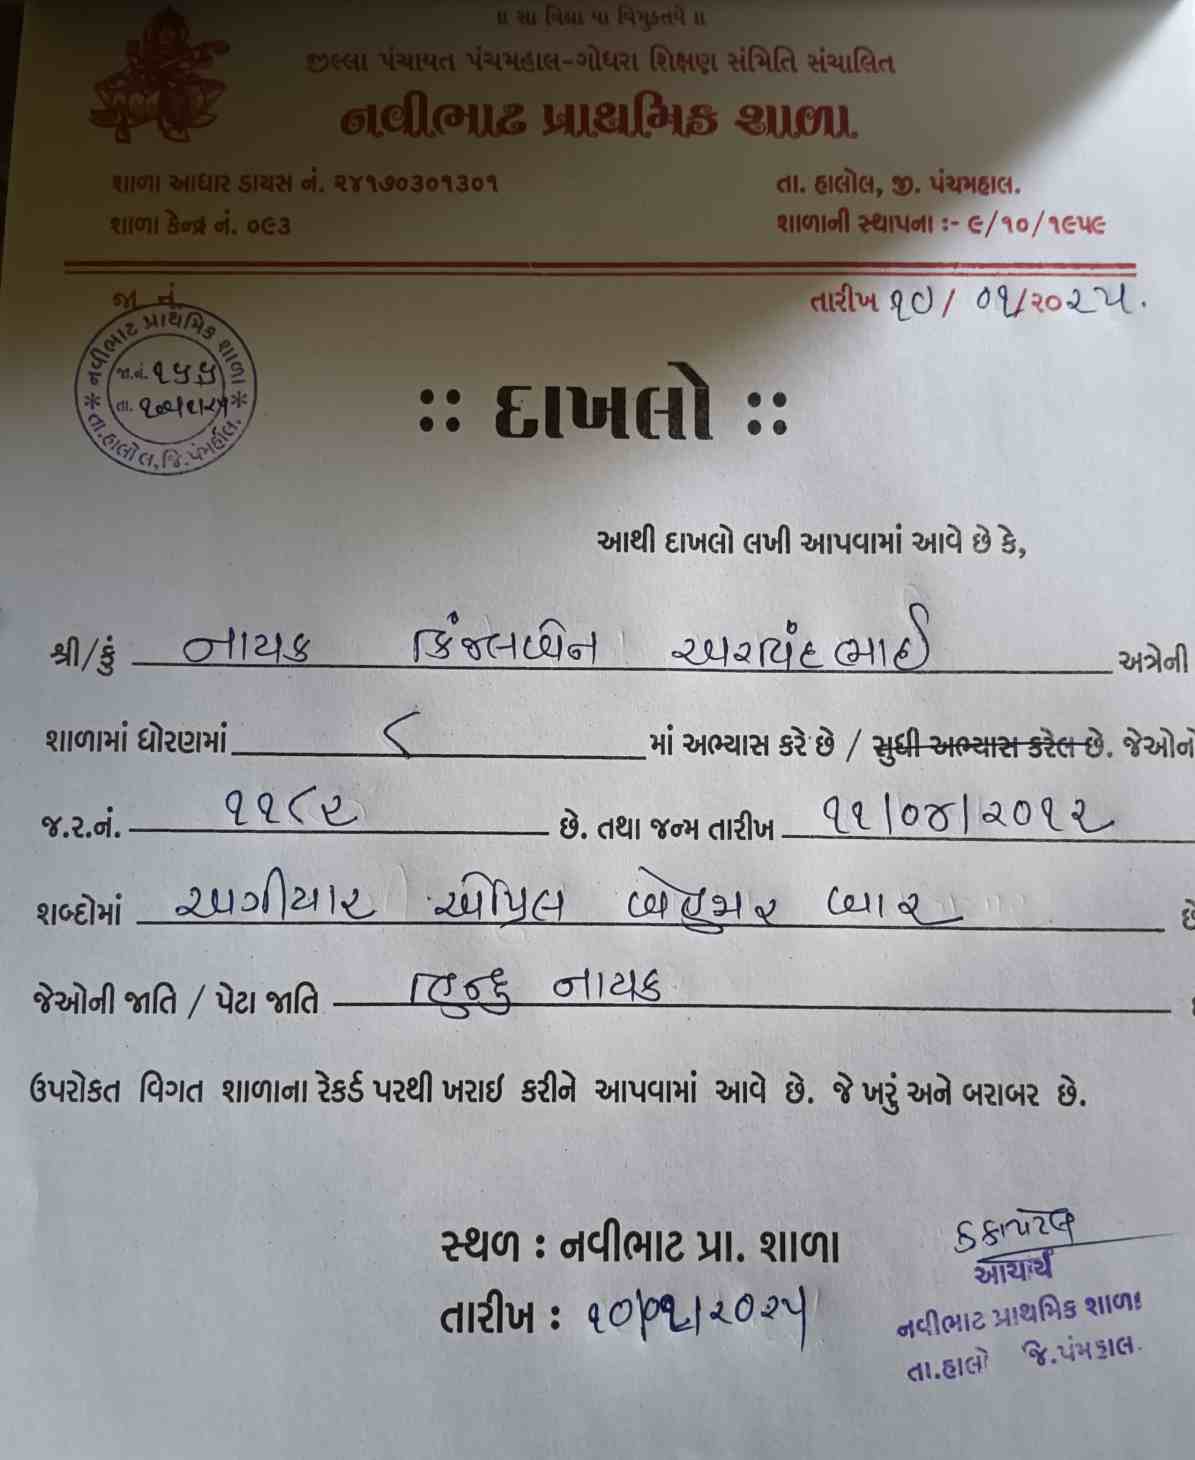 ॥ સા વિદ્યા યા વિમુક્તયે ॥
જીલ્લા પંચાયત પંચમહાલ-ગોધરા શિક્ષણ સંમિતિ સંચાલિત
નવીભાટ પ્રાથમિક શાળા.
શાળા આધાર ડાયસ નં. ૨૪૧૭૦૩૦૧૩૦૧
તા. હાલોલ, જી. પંચમહાલ.
શાળા કેન્દ્ર નં. ૦૯૩
શાળાની સ્થાપના :- ૯/૧૦/૧૯૫૯
જા. નં.
તારીખ ૧૦/ ૦૧/૨૦૨૫.
નવીભાટ પ્રાથમિક શાળા
જા.નં. ૧૫૫
તા.
તા.હાલોલ, જિ.પંમહાલ.
:: દાખલો ::
આથી દાખલો લખી આપવામાં આવે છે કે,
શ્રી/કું નાયક કિંજલબેન અરવિંદભાઈ અત્રેની
શાળામાં ધોરણમાં ૮ માં અભ્યાસ કરે છે / સુધી અભ્યાસ કરેલ છે. જેઓનો
જ.ર.નં. ૧૧૮૨ છે. તથા જન્મ તારીખ ૧૧/૦૪/૨૦૧૨
શબ્દોમાં અગીયાર એપ્રિલ બેહજાર બાર છે
જેઓની જાતિ / પેટા જાતિ હિન્દુ નાયક
ઉપરોકત વિગત શાળાના રેકર્ડ પરથી ખરાઇ કરીને આપવામાં આવે છે. જે ખરું અને બરાબર છે.
સ્થળ : નવીભાટ પ્રા. શાળા
તારીખ : ૧૦/૦૧/૨૦૨૫
આચાર્ય
નવીભાટ પ્રાથમિક શાળા
તા.હાલો જિ.પંમહાલ.